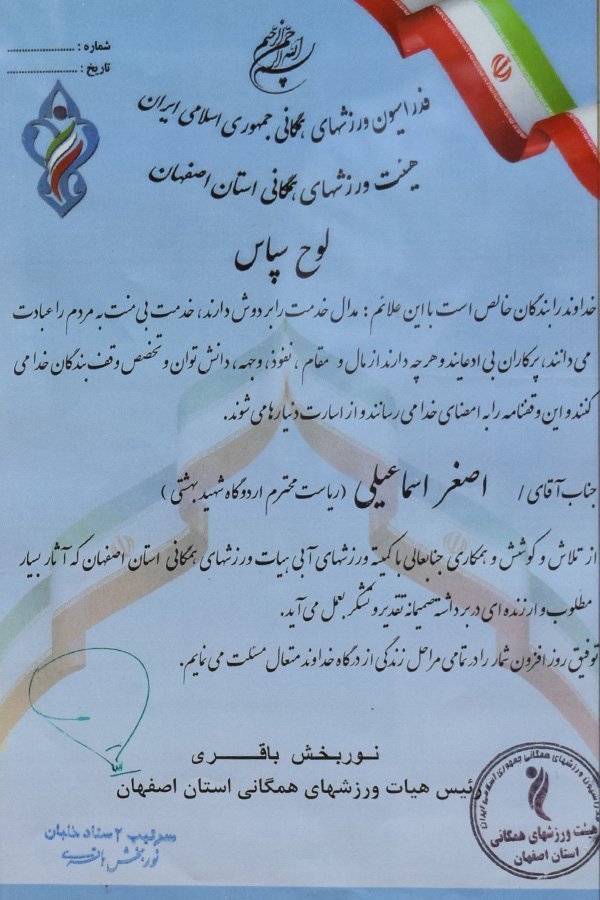 بسم الله الرحمن الرحیم
شماره : ....................
تاریخ : ....................
فدراسیون ورزشهای همگانی جمهوری اسلامی ایران
هیئت ورزشهای همگانی استان اصفهان
لوح سپاس
خداوند را بندگان خالص است با این علائم : مدال خدمت را بر دوش دارند، خدمت بی منت به مردم را عبادت
می دانند، پرکاران بی ادعایند و هر چه دارند از مال و مقام ، نفوذ، وجهه، دانش توان و تخصص وقف بندگان خدا می
کنند و این وقفنامه را به امضای خدا می رسانند و از اسارت دنیا رها می شوند.
جناب آقای / اصغر اسماعیلی (ریاست محترم اردوگاه شهید بهشتی )
از تلاش و کوشش و همکاری جنابعالی با کمیته ورزشهای آبی هیات ورزشهای همگانی استان اصفهان که آثار بسیار
مطلوب و ارزنده ای در بر داشته صمیمانه تقدیر و تشکر بعمل می آید.
توفیق روز افزون شما را در تمامی مراحل زندگی از درگاه خداوند متعال مسئلت می نمایم.
نوربخش باقری
رئیس هیات ورزشهای همگانی استان اصفهان
سرتیپ ۲ ستاد
نوربخش باقری
فدراسیون ورزشهای همگانی جمهوری اسلامی ایران
هیئت ورزشهای همگانی
استان اصفهان